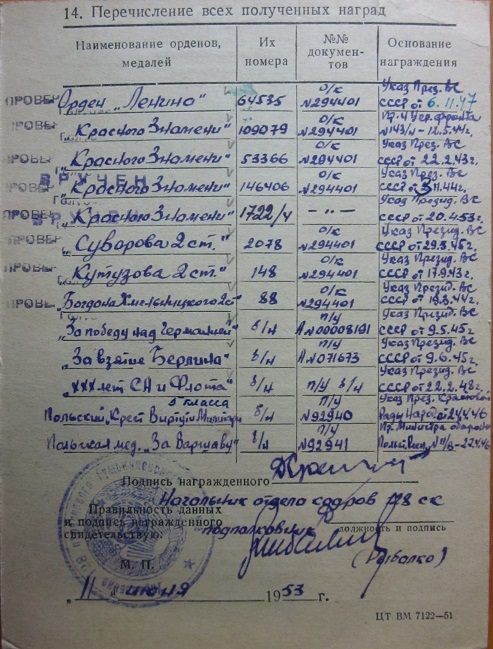 14. Перечисление всех полученных наград
Наименование орденов, медалей
Их номера
№№ документов
Основание награждения
ПРОВЕР Орден „Ленина" 64535 о/к №294401 Указ През. ВС СССР от 6.11.47
ПРОВЕР „Красного Знамени" 109079 о/к №294401 №143/н - 12.5.44г.
ПРОВЕ „Красного Знамени" 53366 о/к №294401 Указ През. ВС СССР от 22.2.43г.
ВРУЧЕН
ПРОВЕ „Красного Знамени" 146406 о/к №294401 Указ През. ВС СССР от 3.11.44г.
ПРОВЕ „Красного Знамени" 1722/4 - „ - Указ Презид. ВС СССР от 20.4.53г.
ПРОВЕР „Суворова 2 ст." 2078 о/к №294401 Указ Презид. ВС СССР от 29.5.45г.
ПРОВЕ „Кутузова 2 ст." 148 о/к №294401 Указ Презид. ВС СССР от 17.9.43г.
ПРОВЕ „Богдана Хмельницкого 2 ст" 88 о/к №294401 Указ Презид. ВС СССР от 19.3.44г.
„За победу над Германией" б/н п/у А №0008191 Указ Презид. ВС СССР от 9.5.45г.
„За взятие Берлина" б/н п/у А №071673 Указ Презид. ВС СССР от 9.6.45г.
„XXX лет СА и Флота" б/н п/у б/н Указ Презид. ВС СССР от 22.2.48г.
5 класса
Польский „Крест Виртути Милитари б/н п/у №92940 Указ През. Рады Народ от 24.4.46
Польская мед. „За Варшаву" б/н п/у №92941 Пр. Министра обороны
Подпись награжденного
Начальник отдела кадров
Правильность данных и подпись награжденного свидетельствую:
подполковник
должность и подпись
(Рыболко)
М. П.
„11" июня 1953 г.
ЦТ ВМ 7122—51